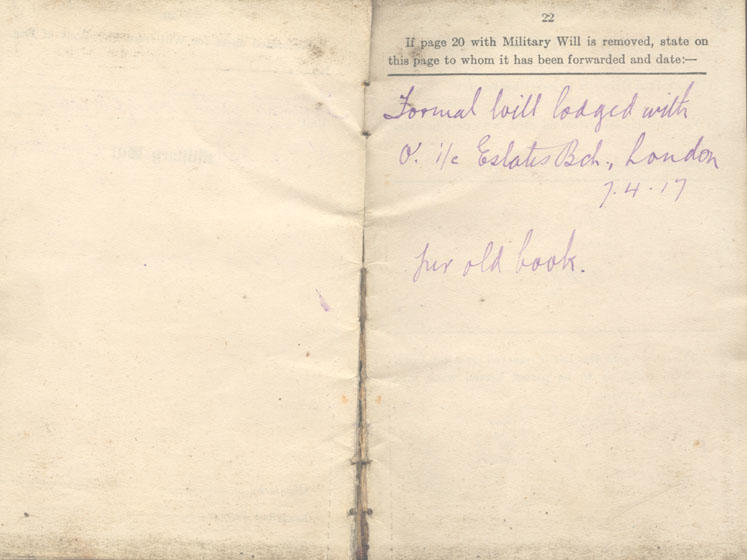 22
If page 20 with Military Will is removed, state on
this page to whom it has been forwarded and date:—
Formal Will lodged with
O. i/c Estates Bch., London
7.4.17
per old book.